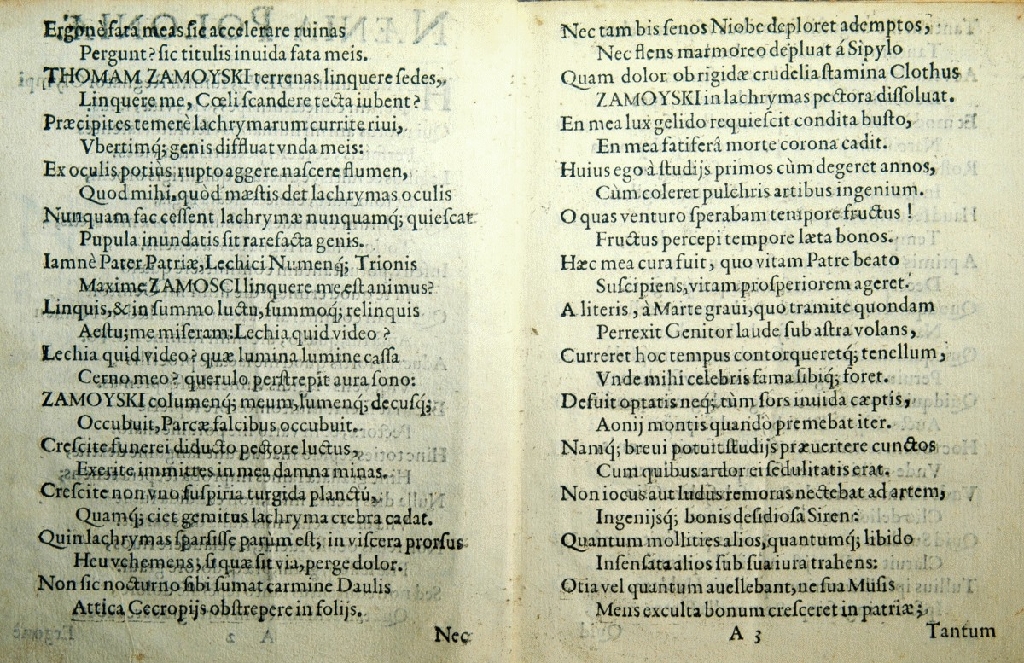 Ergone fata meas sic accelerare ruinas
Pergunt? sic titulis inuida fata meis.
THOMAM ZAMOYSKI terrenas linquere sedes,
Linquere me, Cœli scandere tecta iubent?
Præcipites temerè lachrymarum currite riui,
Vbertimq; genis diffluat vnda meis:
Ex oculis potius rupto aggere nascere flumen,
Quod mihi, quòd mæstis det lachrymas oculis
Nunquam fac cessent lachrymæ nunquamq; quiescat
Pupula inundatis sit rarefacta genis.
Iamnè Pater Patriæ, Lechici Numenq; Trionis
Maxime ZAMOSCI linquere me, est animus?
Linquis, & in summo luctu, summoq; relinquis
Aestu; me miseram: Lechia quid video?
Lechia quid video? quæ lumina lumine cassa
Cerno meo? querulo perstrepit aura sono:
ZAMOYSKI columenq; meum, lumenq; decusq;
Occubuit, Parcæ falcibus occubuit.
Crescite funerei diducto pectore luctus,
Exerite immittes in mea damna minas.
Crescite non vno suspiria turgida planctū,
Quamq; ciet gemitus lachryma crebra cadat.
Quin lachrymas sparsisse parùm est, in viscera prorsus
Heu vehemens; si quæ sit via, perge dolor.
Non sic nocturno sibi sumat carmine Daulis
Attica Cecropijs obstrepere in folijs.
Nec
Nec tam bis senos Niobe deploret ademptos,
Nec flens marmoreo depluat á Sipylo
Quam dolor ob rigidæ crudelia stamina Clothus
ZAMOYSKI in lachrymas pectora dissoluat.
En mea lux gelido requiescit condita busto,
En mea fatiferá morte corona cadit.
Huius ego à studijs primos cùm degeret annos,
Cùm coleret pulchris artibus ingenium.
O quas venturo sperabam tempore fructus!
Fructus percepi tempore læta bonos.
Hæc mea cura fuit, quo vitam Patre beato
Suscipiens, vitam prosperiorem ageret.
A literis, à Marte graui, quo tramite quondam
Perrexit Genitor laude sub astra volans,
Curreret hoc tempus contorqueretq; tenellum,
Vnde mihi celebris fama sibiq; foret.
Defuit optatis neq; tùm sors inuida cæptis,
Aonij montis quando premebat iter.
Namq; breui potuit studijs præuertere cunctos
Cum quibus ardor ei sedulitatis erat.
Non iocus aut ludus remoras nectebat ad artem,
Ingenijsq; bonis desidiosa Siren:
Quantum mollities alios, quantumq; libido
Insensata alios sub sua iura trahens:
Otia vel quantum auellebant, ne sua Musis
Mens exculta bonum cresceret in patriæ;
A 3
Tantum